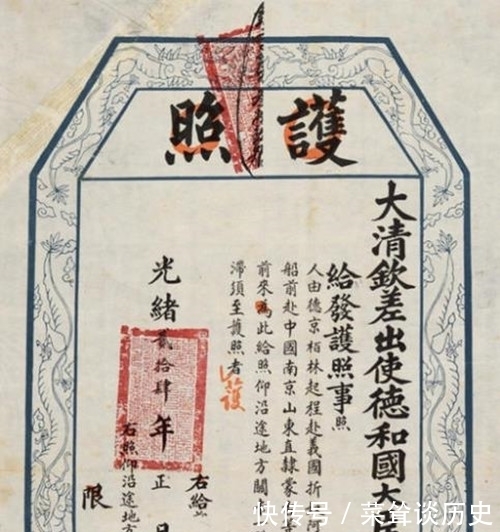 護照
大清欽差出使德和國大
給發護照事照
人由德京栢林起程赴義國折
船前赴中國南京山東直隸蒙
前來為此給照仰沿途地方關
滯須至護照者
護
右給
光緒貳拾肆年正
日
右照仰沿途地方
限
快传号/菜耸谈历史